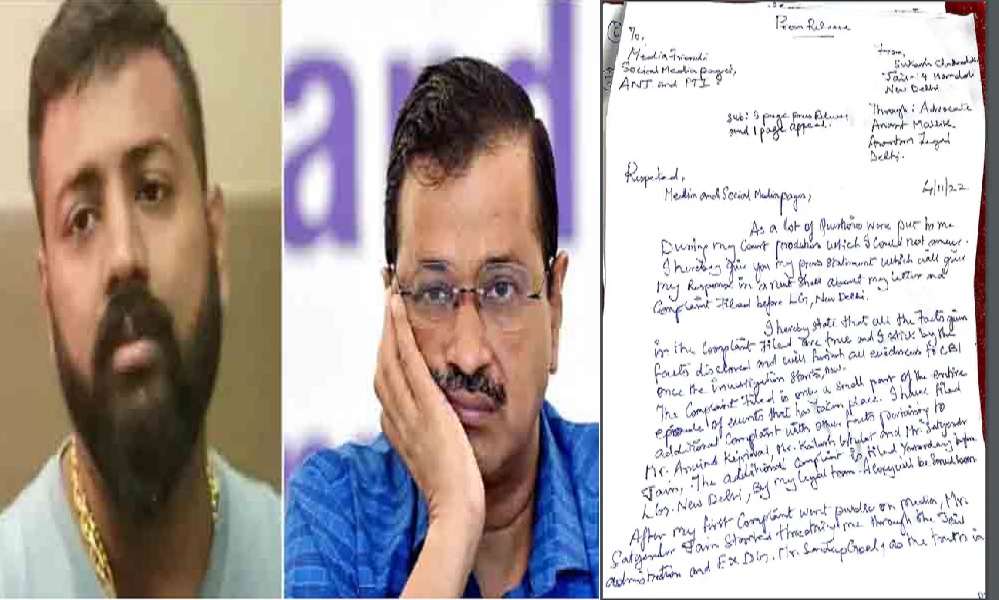 and
Press Release
To,
Media Friends
Social Media pages,
ANI and PTI
From,
Sukash Chandrashekar
Jail-14 Mandoli
New Delhi
Sub: 5 page press Release
and 1 page appeal.
Through: Advocate
Anant Malik
Delhi.
Respected,
4/11/22
Media and Social Media pages,
As a lot of Questions were put to me
During my Court production which I could not answer.
I hereby give you my press statement which will give
my Response in a nut shell about my letter and
Complaint Filed before LG, New Delhi.
I hereby state that all the Facts given
in the Complaint Filed are true and I stick by the
facts disclosed and will furnish all evidences to CBI
once the Investigation starts,
The Complaint Filed is only a small part of the entire
episode of events that has taken place. I have filed
additional Complaint with other facts pertaining to
Mr. Arvind Kejriwal, Mr. Kailash and Mr. Satyendar
Jain, The additional Complaint is filed Yesterday before
LG, New Delhi, By my legal team. A copy will be
After my first Complaint went public on media, Mr.
Satyendar Jain Started threatening me through the Jail
administration and Ex DG, Mr. Sandeep Goel, as the truth is